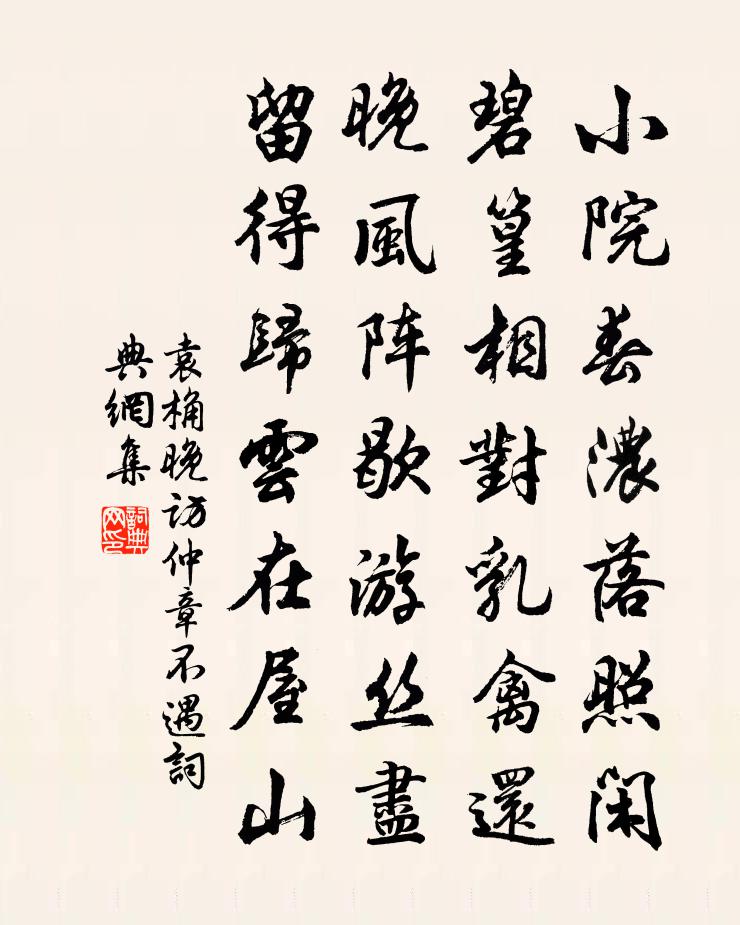 小院春濃落照閑
碧篁相對乳禽還
晚風阵歇游丝盡
留得歸雲在屋山
袁桷晚访仲章不遇詞
典網集
詞典网印